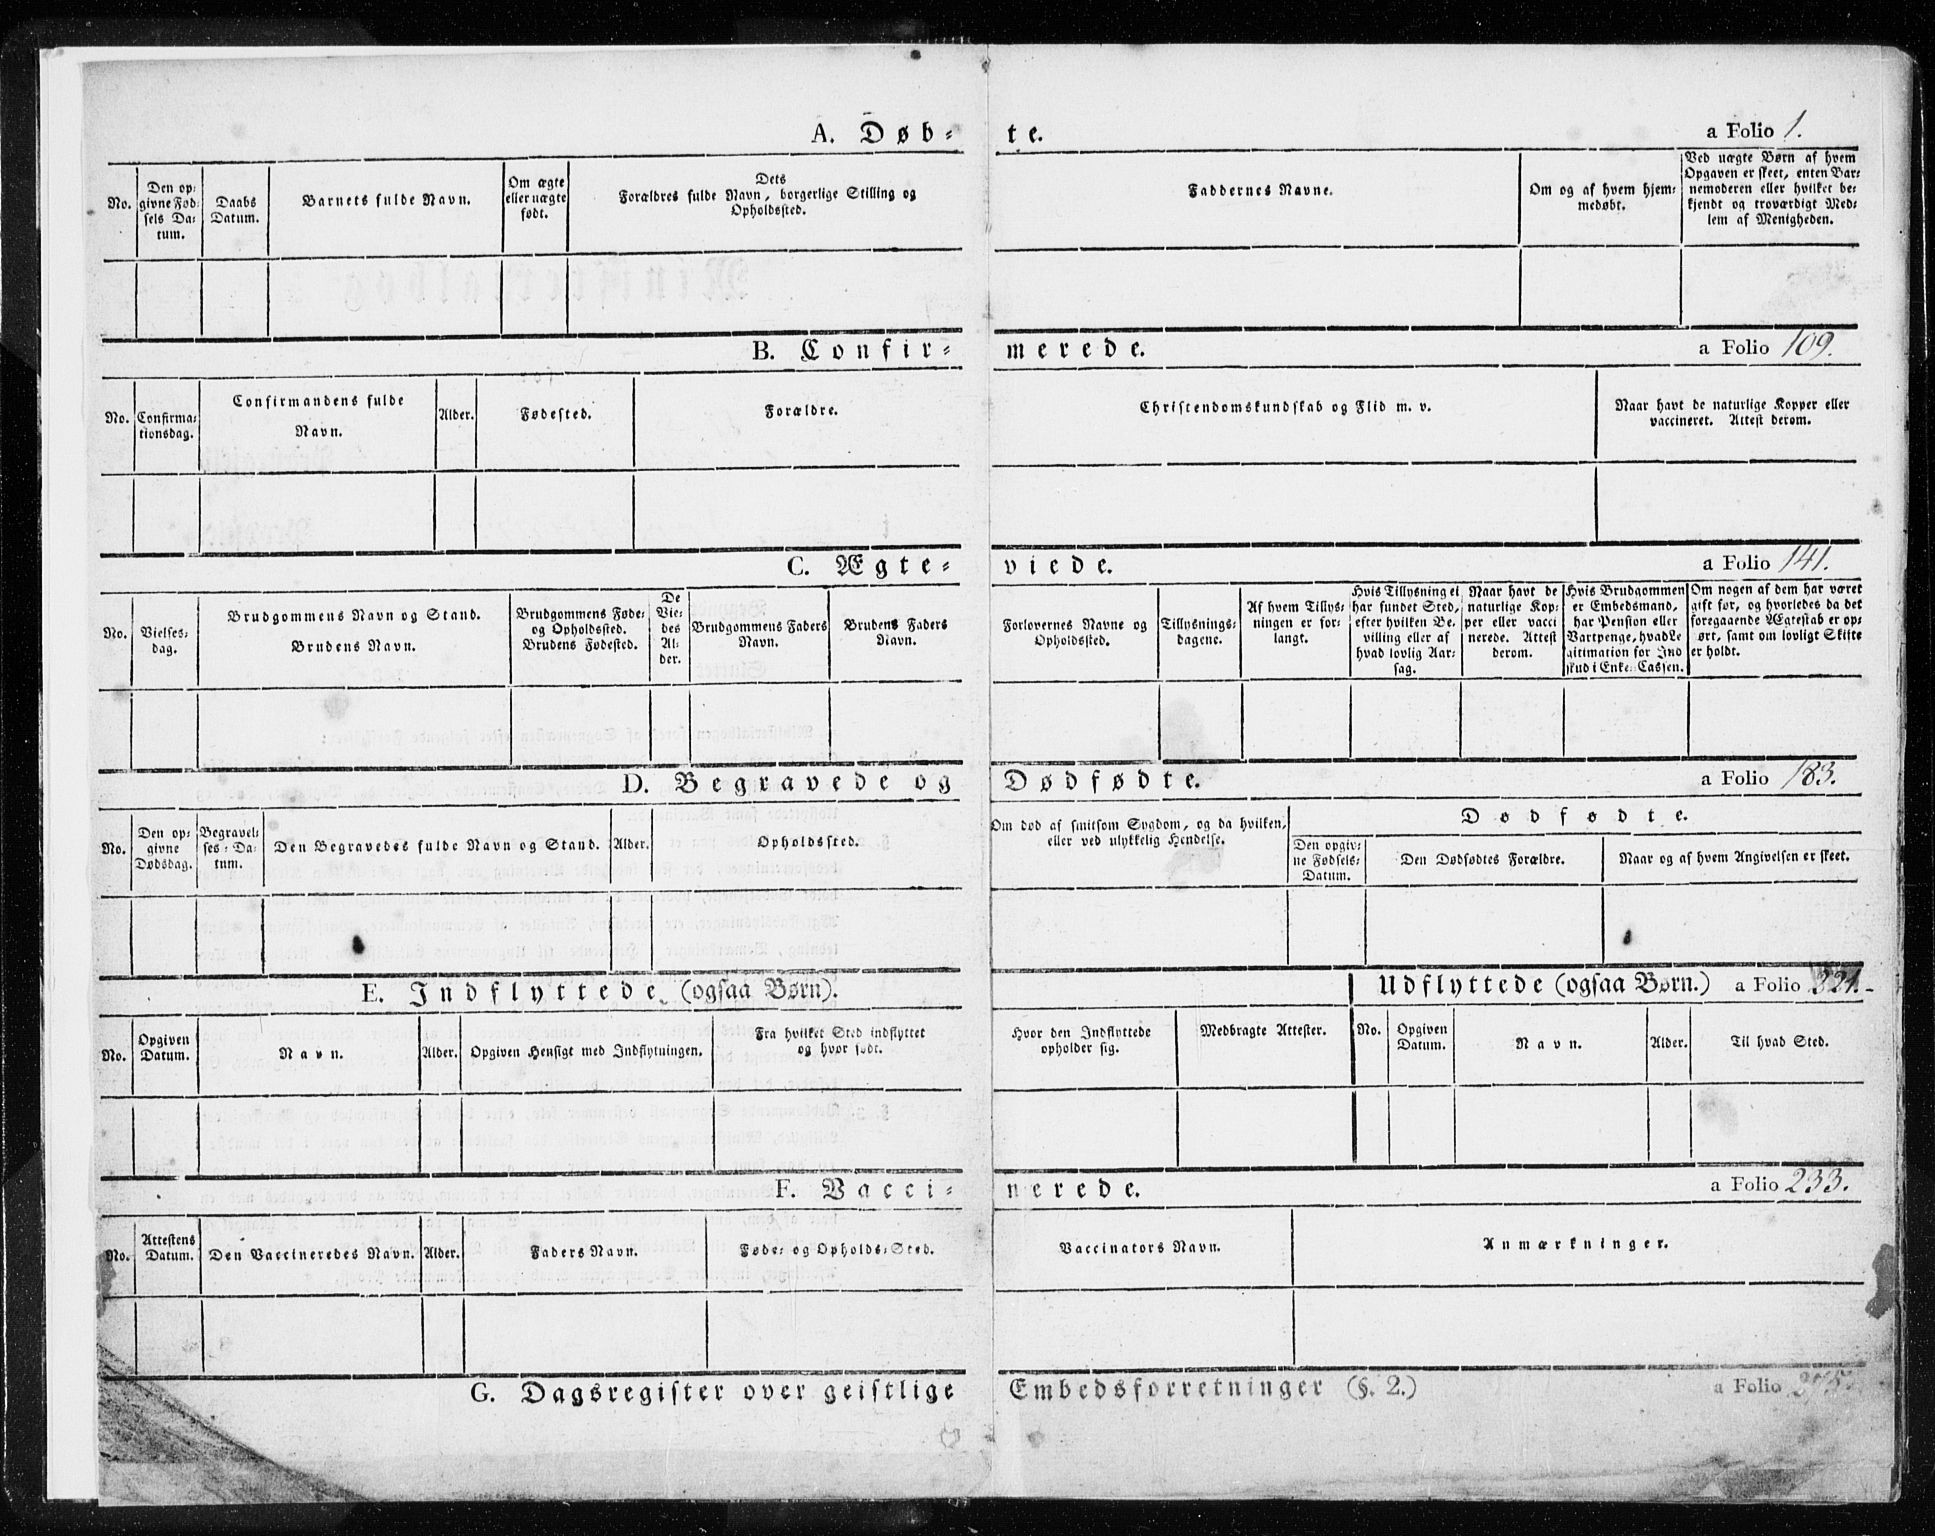 A. Døb- te. a Folio 1.
No.
Den op-
givne Fød-
sels Da-
tum.
Daabs
Datum.
Barnets fulde Navn.
Om ægte
eller uægte
født.
Dets
Forældres fulde Navn, borgerlige Stilling og
Opholdssted.
Faddernes Navne.
Om og af hvem hjem-
medøbt.
Ved uægte Børn af hvem
Opgaven er skeet, enten Bar-
nemoderen eller hvilket be-
kjendt og troværdigt Med-
lem af Menigheden.
B. Confir- merede. a Folio 109.
No.
Confirma-
tionsdag.
Confirmandens fulde
Navn.
Alder.
Fødested.
Forældre.
Christendomskundskab og Flid m. v.
Naar havt de naturlige Kopper eller
vaccineret. Attest derom.
C. Ægte- viede. a Folio 141.
No.
Vielses-
dag.
Brudgommens Navn og Stand.
Brudens Navn.
Brudgommens Føde-
og Opholdssted.
Brudens Fødested.
De
Vie-
des
Al-
der.
Brudgommens Faders
Navn.
Brudens Faders
Navn.
Forlovernes Navne og
Opholdssted.
Tillysnings-
dagene.
Af hvem Tillys-
ningen er for-
langt.
Hvis Tillysning ei
har fundet Sted,
efter hvilken Be-
villing eller af
hvad lovlig Aar-
sag.
Naar havt de
naturlige Kop-
per eller vacci
nerede. Attest
derom.
Hvis Brudgommen
er Embedsmand,
har Pension eller
Vartpenge, hvad Le
gitimation for Ind
skud i Enke-Cassen.
Om nogen af dem har været
gift før, og hvorledes da det
foregaaende Ægteskab er op-
ørt, samt om lovligt Skifte
er holdt.
D. Begravede og Dødfødte. a Folio 183.
No.
Den op-
givne
Dødsdag.
Begravel-
ses-Da-
tum.
Den Begravedes fulde Navn og Stand.
Alder.
Opholdssted.
Om død af smitsom Sygdom, og da hvilken,
eller ved ulykkelig Hendelse.
Dødfødte.
Den opgiv-
ne Fødsels-
Datum.
Den Dødfødtes Forældre.
Naar og af hvem Angivelsen er skeet.
E. Indflyttede (ogsaa Børn). Udflyttede (ogsaa Børn.) a Folio 221.
No.
Opgiven
Datum.
Navn.
Alder.
Opgiven Hensigt med Indflytningen.
Fra hvilket Sted indflyttet
og hvor født.
Hvor den Indflyttede
opholder sig.
Medbragte Attester.
No.
Opgiven
Datum.
Navn.
Alder.
Til hvad Sted.
F. Vacci- nerede. a Folio 233.
No.
Attestens
Datum.
Den Vaccineredes Navn.
Alder.
Faders Navn.
Føde- og Opholds-Sted.
Vaccinators Navn.
Anmærkninger.
G. Dagsregister over geistlige Embedsforretninger (§. 2.) a Folio 275.